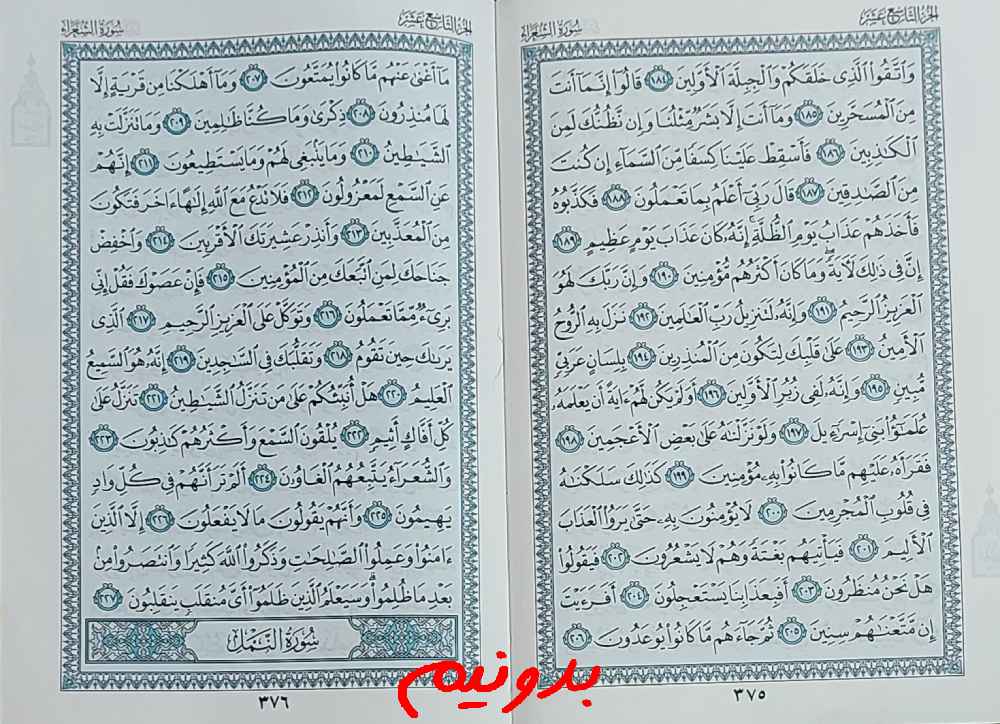 الجزء التاسع عشر
سورة الشعراء
وَاتَّقُوا الَّذِي خَلَقَكُمْ وَالْجِبِلَّةَ الْأَوَّلِينَ ١٨٤ قَالُوا إِنَّمَا أَنتَ
مِنَ الْمُسَحَّرِينَ ١٨٥ وَمَا أَنتَ إِلَّا بَشَرٌ مِّثْلُنَا وَإِن نَّظُنُّكَ لَمِنَ
الْكَٰذِبِينَ ١٨٦ فَأَسْقِطْ عَلَيْنَا كِسَفًا مِّنَ السَّمَاءِ إِن كُنتَ
مِنَ الصَّٰدِقِينَ ١٨٧ قَالَ رَبِّي أَعْلَمُ بِمَا تَعْمَلُونَ ١٨٨ فَكَذَّبُوهُ
فَأَخَذَهُمْ عَذَابُ يَوْمِ الظُّلَّةِ إِنَّهُ كَانَ عَذَابَ يَوْمٍ عَظِيمٍ ١٨٩
إِنَّ فِي ذَٰلِكَ لَآيَةً وَمَا كَانَ أَكْثَرُهُم مُّؤْمِنِينَ ١٩٠ وَإِنَّ رَبَّكَ لَهُوَ
الْعَزِيزُ الرَّحِيمُ ١٩١ وَإِنَّهُ لَتَنزِيلُ رَبِّ الْعَٰلَمِينَ ١٩٢ نَزَلَ بِهِ الرُّوحُ
الْأَمِينُ ١٩٣ عَلَىٰ قَلْبِكَ لِتَكُونَ مِنَ الْمُنذِرِينَ ١٩٤ بِلِسَانٍ عَرَبِيٍّ
مُّبِينٍ ١٩٥ وَإِنَّهُ لَفِي زُبُرِ الْأَوَّلِينَ ١٩٦ أَوَلَمْ يَكُن لَّهُمْ ءَايَةً أَن يَعْلَمَهُ
عُلَمَٰٓؤُا بَنِي إِسْرَٰٓءِيلَ ١٩٧ وَلَوْ نَزَّلْنَٰهُ عَلَىٰ بَعْضِ الْأَعْجَمِينَ ١٩٨
فَقَرَأَهُ عَلَيْهِم مَّا كَانُوا بِهِ مُؤْمِنِينَ ١٩٩ كَذَٰلِكَ سَلَكْنَٰهُ
فِي قُلُوبِ الْمُجْرِمِينَ ٢٠٠ لَا يُؤْمِنُونَ بِهِ حَتَّىٰ يَرَوُا الْعَذَابَ
الْأَلِيمَ ٢٠١ فَيَأْتِيَهُم بَغْتَةً وَهُمْ لَا يَشْعُرُونَ ٢٠٢ فَيَقُولُوا
هَلْ نَحْنُ مُنظَرُونَ ٢٠٣ أَفَبِعَذَابِنَا يَسْتَعْجِلُونَ ٢٠٤ أَفَرَءَيْتَ
إِن مَّتَّعْنَٰهُمْ سِنِينَ ٢٠٥ ثُمَّ جَاءَهُم مَّا كَانُوا يُوعَدُونَ ٢٠٦
٣٧٥
الجزء التاسع عشر
سورة الشعراء
مَا أَغْنَىٰ عَنْهُم مَّا كَانُوا يُمَتَّعُونَ ٢٠٧ وَمَا أَهْلَكْنَا مِن قَرْيَةٍ إِلَّا
لَهَا مُنذِرُونَ ٢٠٨ ذِكْرَىٰ وَمَا كُنَّا ظَٰلِمِينَ ٢٠٩ وَمَا تَنَزَّلَتْ بِهِ
الشَّيَٰطِينُ ٢١٠ وَمَا يَنبَغِي لَهُمْ وَمَا يَسْتَطِيعُونَ ٢١١ إِنَّهُمْ
عَنِ السَّمْعِ لَمَعْزُولُونَ ٢١٢ فَلَا تَدْعُ مَعَ اللَّهِ إِلَٰهًا ءَاخَرَ فَتَكُونَ
مِنَ الْمُعَذَّبِينَ ٢١٣ وَأَنذِرْ عَشِيرَتَكَ الْأَقْرَبِينَ ٢١٤ وَاخْفِضْ
جَنَاحَكَ لِمَنِ اتَّبَعَكَ مِنَ الْمُؤْمِنِينَ ٢١٥ فَإِنْ عَصَوْكَ فَقُلْ إِنِّي
بَرِيءٌ مِّمَّا تَعْمَلُونَ ٢١٦ وَتَوَكَّلْ عَلَى الْعَزِيزِ الرَّحِيمِ ٢١٧ الَّذِي
يَرَىٰكَ حِينَ تَقُومُ ٢١٨ وَتَقَلُّبَكَ فِي السَّٰجِدِينَ ٢١٩ إِنَّهُ هُوَ السَّمِيعُ
الْعَلِيمُ ٢٢٠ هَلْ أُنَبِّئُكُمْ عَلَىٰ مَن تَنَزَّلُ الشَّيَٰطِينُ ٢٢١ تَنَزَّلُ عَلَىٰ
كُلِّ أَفَّاكٍ أَثِيمٍ ٢٢٢ يُلْقُونَ السَّمْعَ وَأَكْثَرُهُمْ كَٰذِبُونَ ٢٢٣
وَالشُّعَرَاءُ يَتَّبِعُهُمُ الْغَاوُونَ ٢٢٤ أَلَمْ تَرَ أَنَّهُمْ فِي كُلِّ وَادٍ
يَهِيمُونَ ٢٢٥ وَأَنَّهُمْ يَقُولُونَ مَا لَا يَفْعَلُونَ ٢٢٦ إِلَّا الَّذِينَ
ءَامَنُوا وَعَمِلُوا الصَّٰلِحَٰتِ وَذَكَرُوا اللَّهَ كَثِيرًا وَانتَصَرُوا مِن
بَعْدِ مَا ظُلِمُوا وَسَيَعْلَمُ الَّذِينَ ظَلَمُوا أَيَّ مُنقَلَبٍ يَنقَلِبُونَ ٢٢٧
سُورَةُ النَّمْلِ
٣٧٦
بدونیم